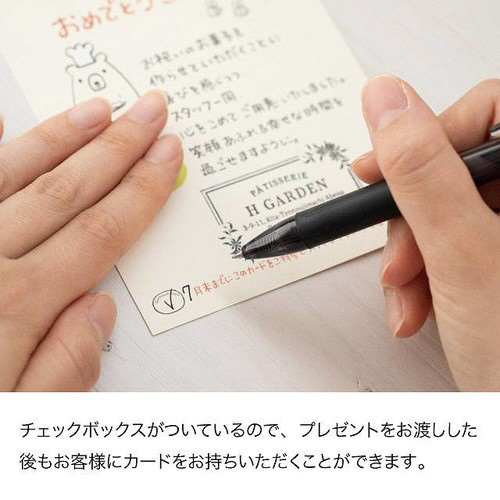 おめでとうご
お祝いのお菓子を
作らせていただくこと
喜びを感じつつ
スタッフ一同
心をこめてご用意いたしました。
笑顔あふれる幸せな時間を
過ごせますように。
PATISSERIE
H GARDEN
3-9-11, Kita-Tenn
7月末までにこのカードをご
チェックボックスがついているので、プレゼントをお渡しした
後もお客様にカードをお持ちいただくことができます。